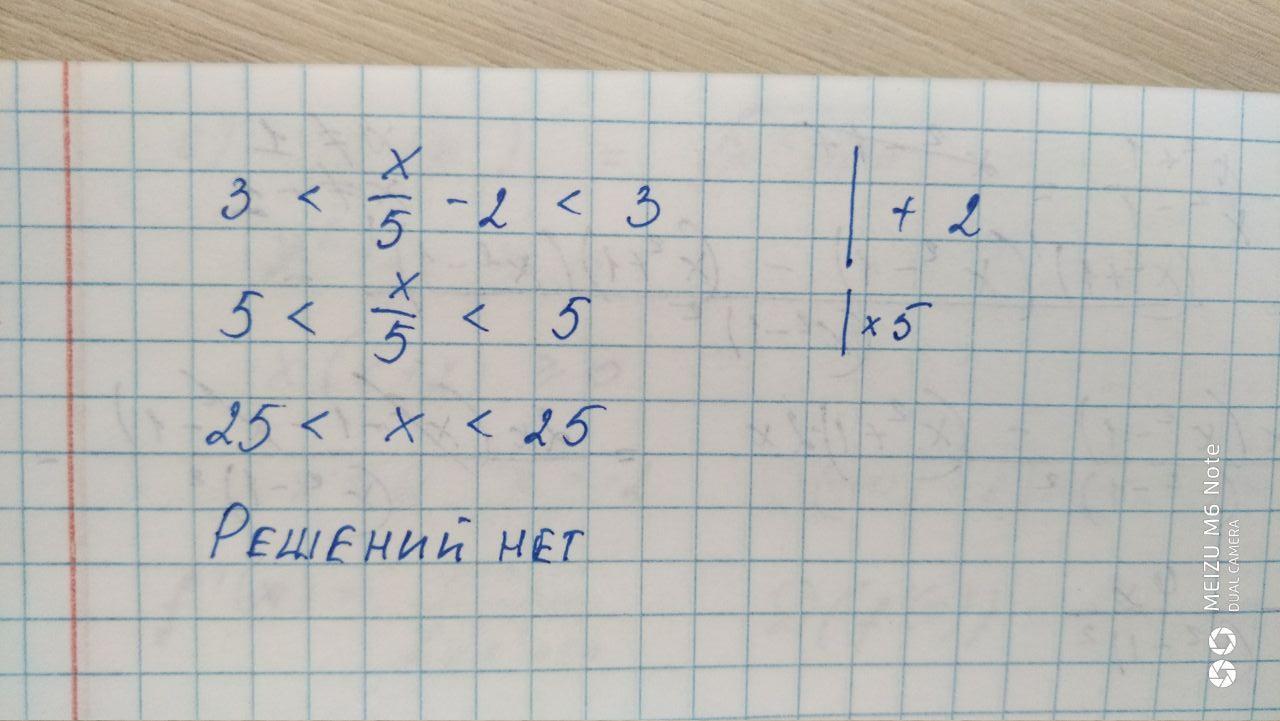 3 < x/5 - 2 < 3 | + 2
5 < x/5 < 5 | × 5
25 < x < 25
Решений нет
MEIZU M6 Note
DUAL CAMERA